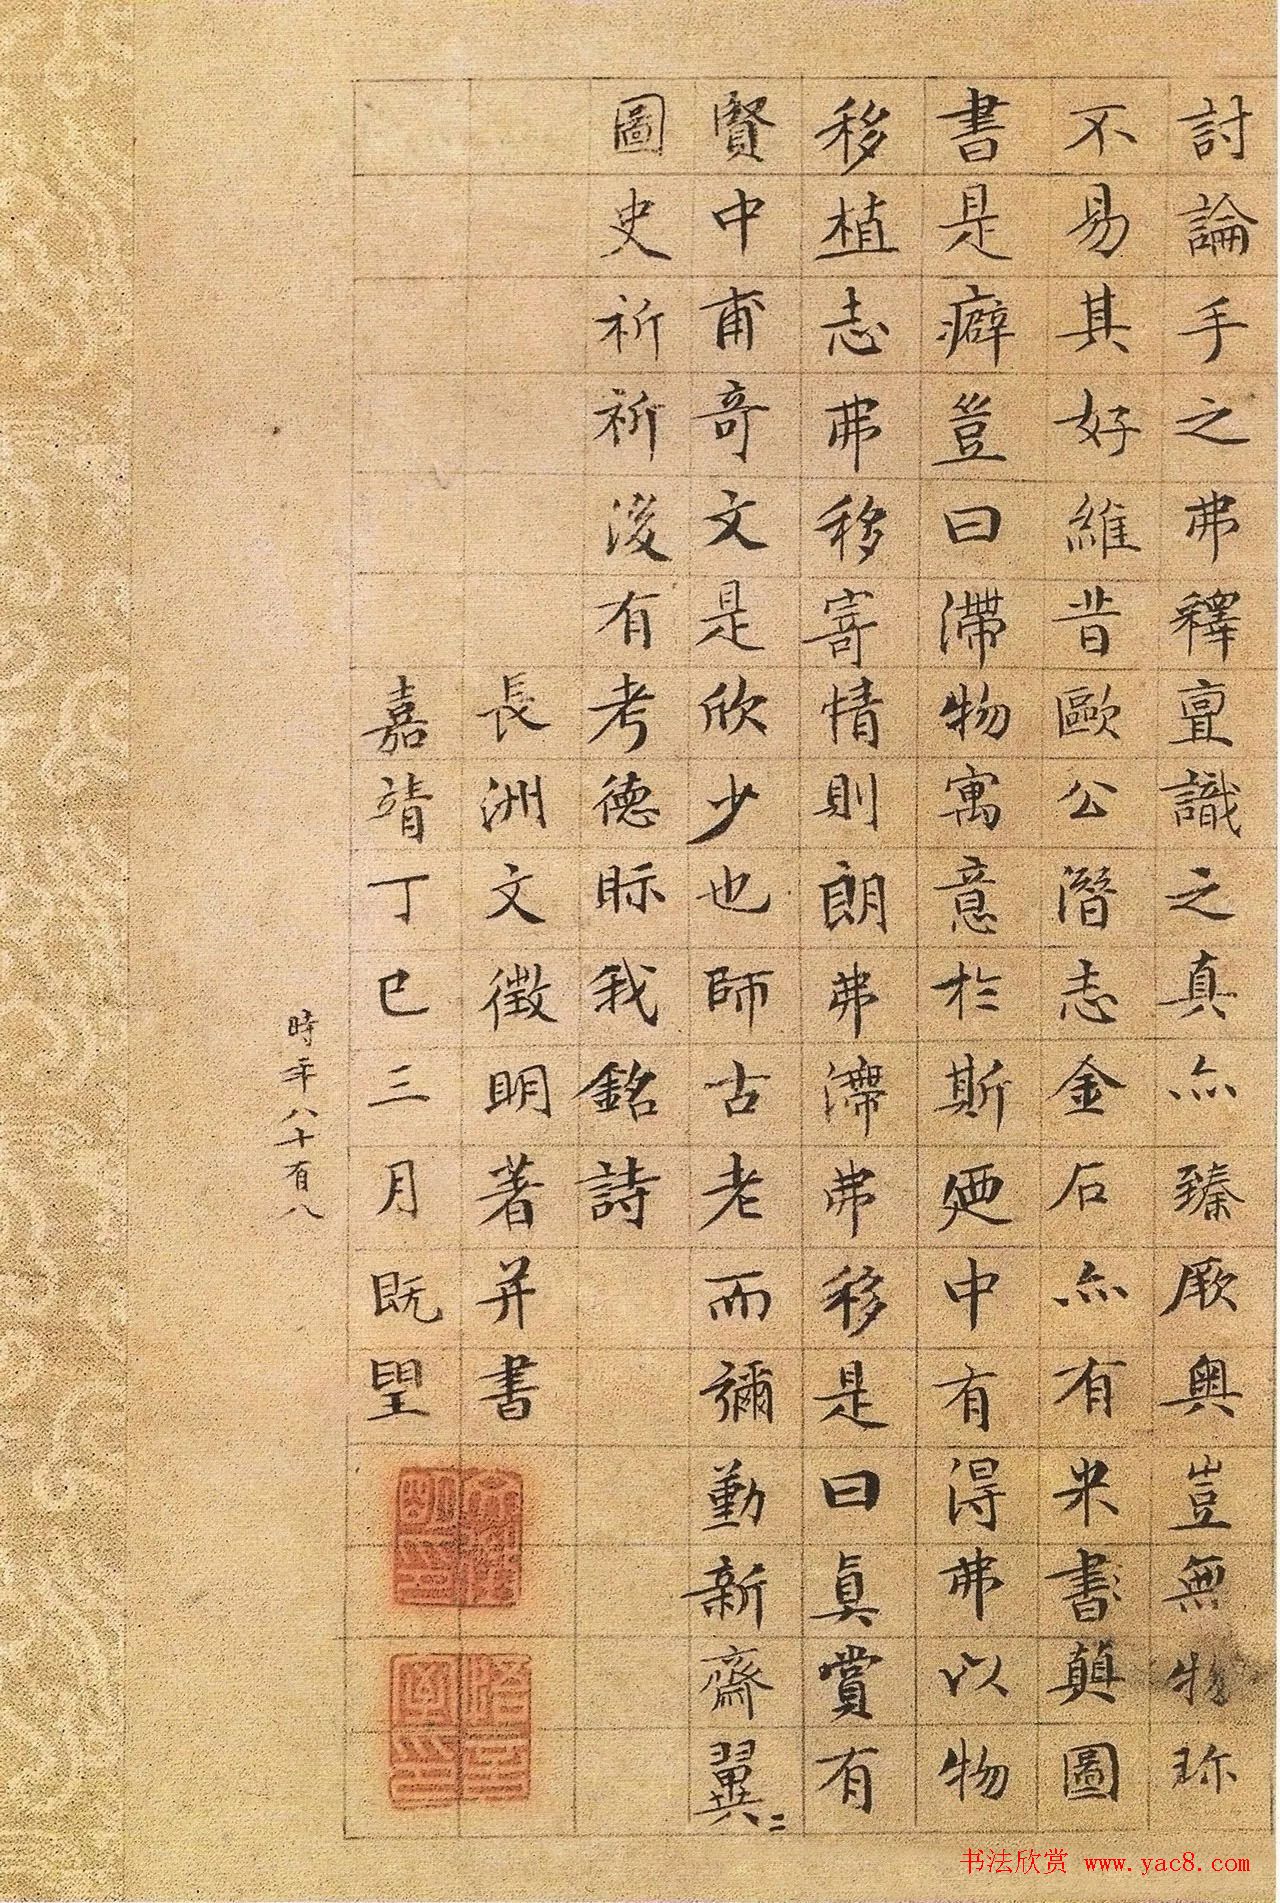 討論手之弗釋亶識之真亦臻厥奧豈無物珎
不易其好維昔歐公潛志金石亦有米書顛圖
書是癖豈曰滯物寓意於斯廼中有得弗以物
移植志弗移寄情則朗弗滯弗移是曰真賞有
賢中甫奇文是欣少也師古老而彌勤新齋翼〻
圖史祈祈後有考德眎我銘詩
長洲文徵明著并書
嘉靖丁巳三月既望
時年八十有八
书法欣赏 www.yac8.com